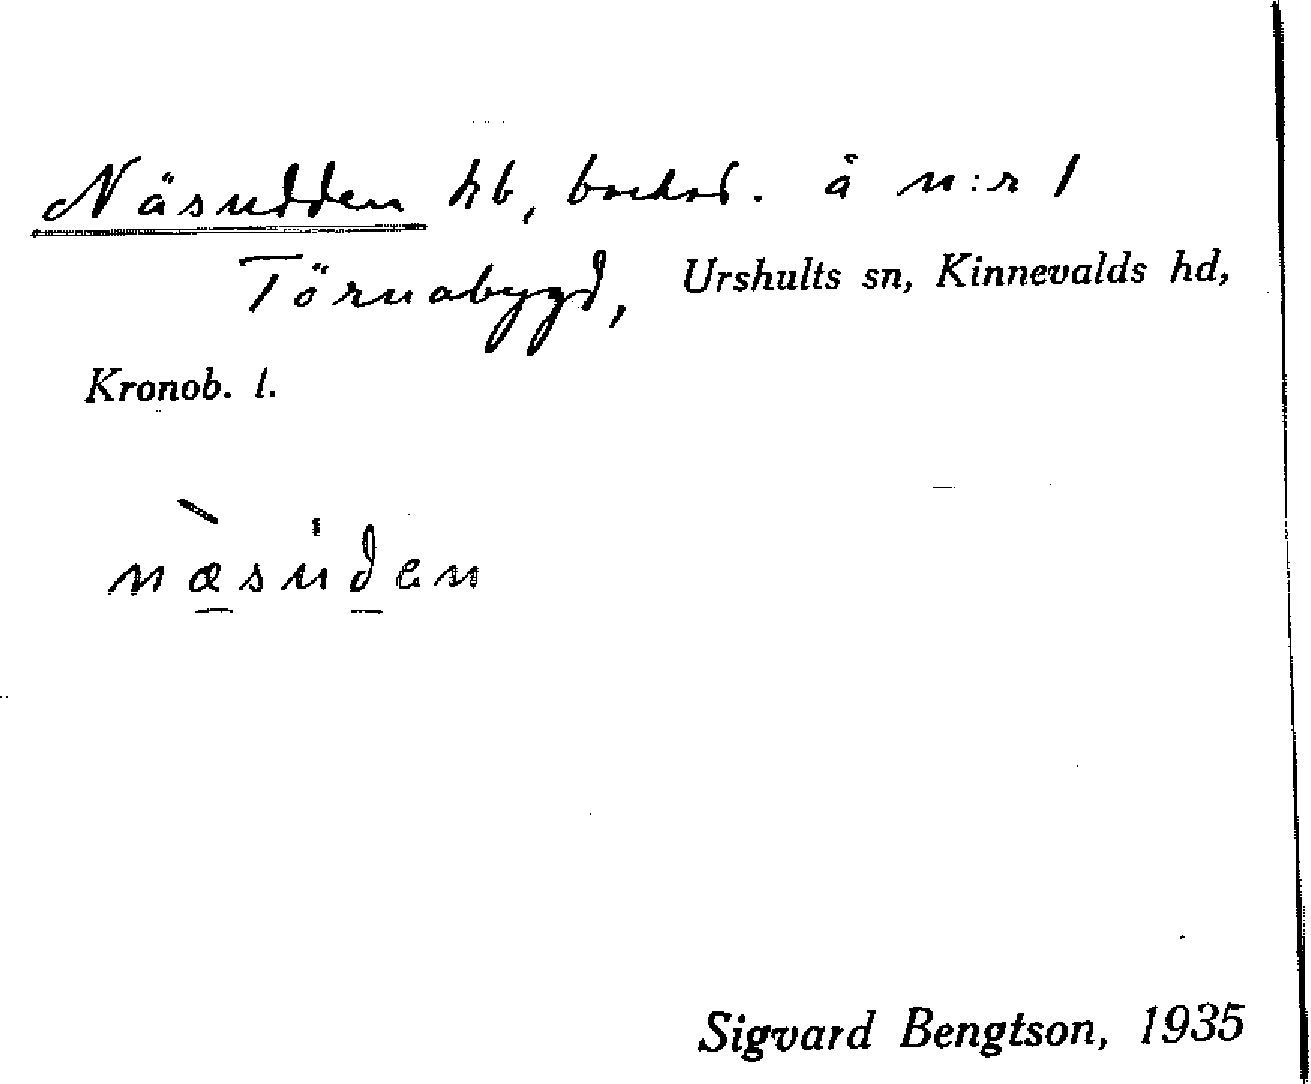 Näsudden hb, bortod. å n:r 1
Törnabygd, Urshults sn, Kinnevalds hd,
Kronob. l.
næ̀su̍den
Sigvard Bengtson, 1935